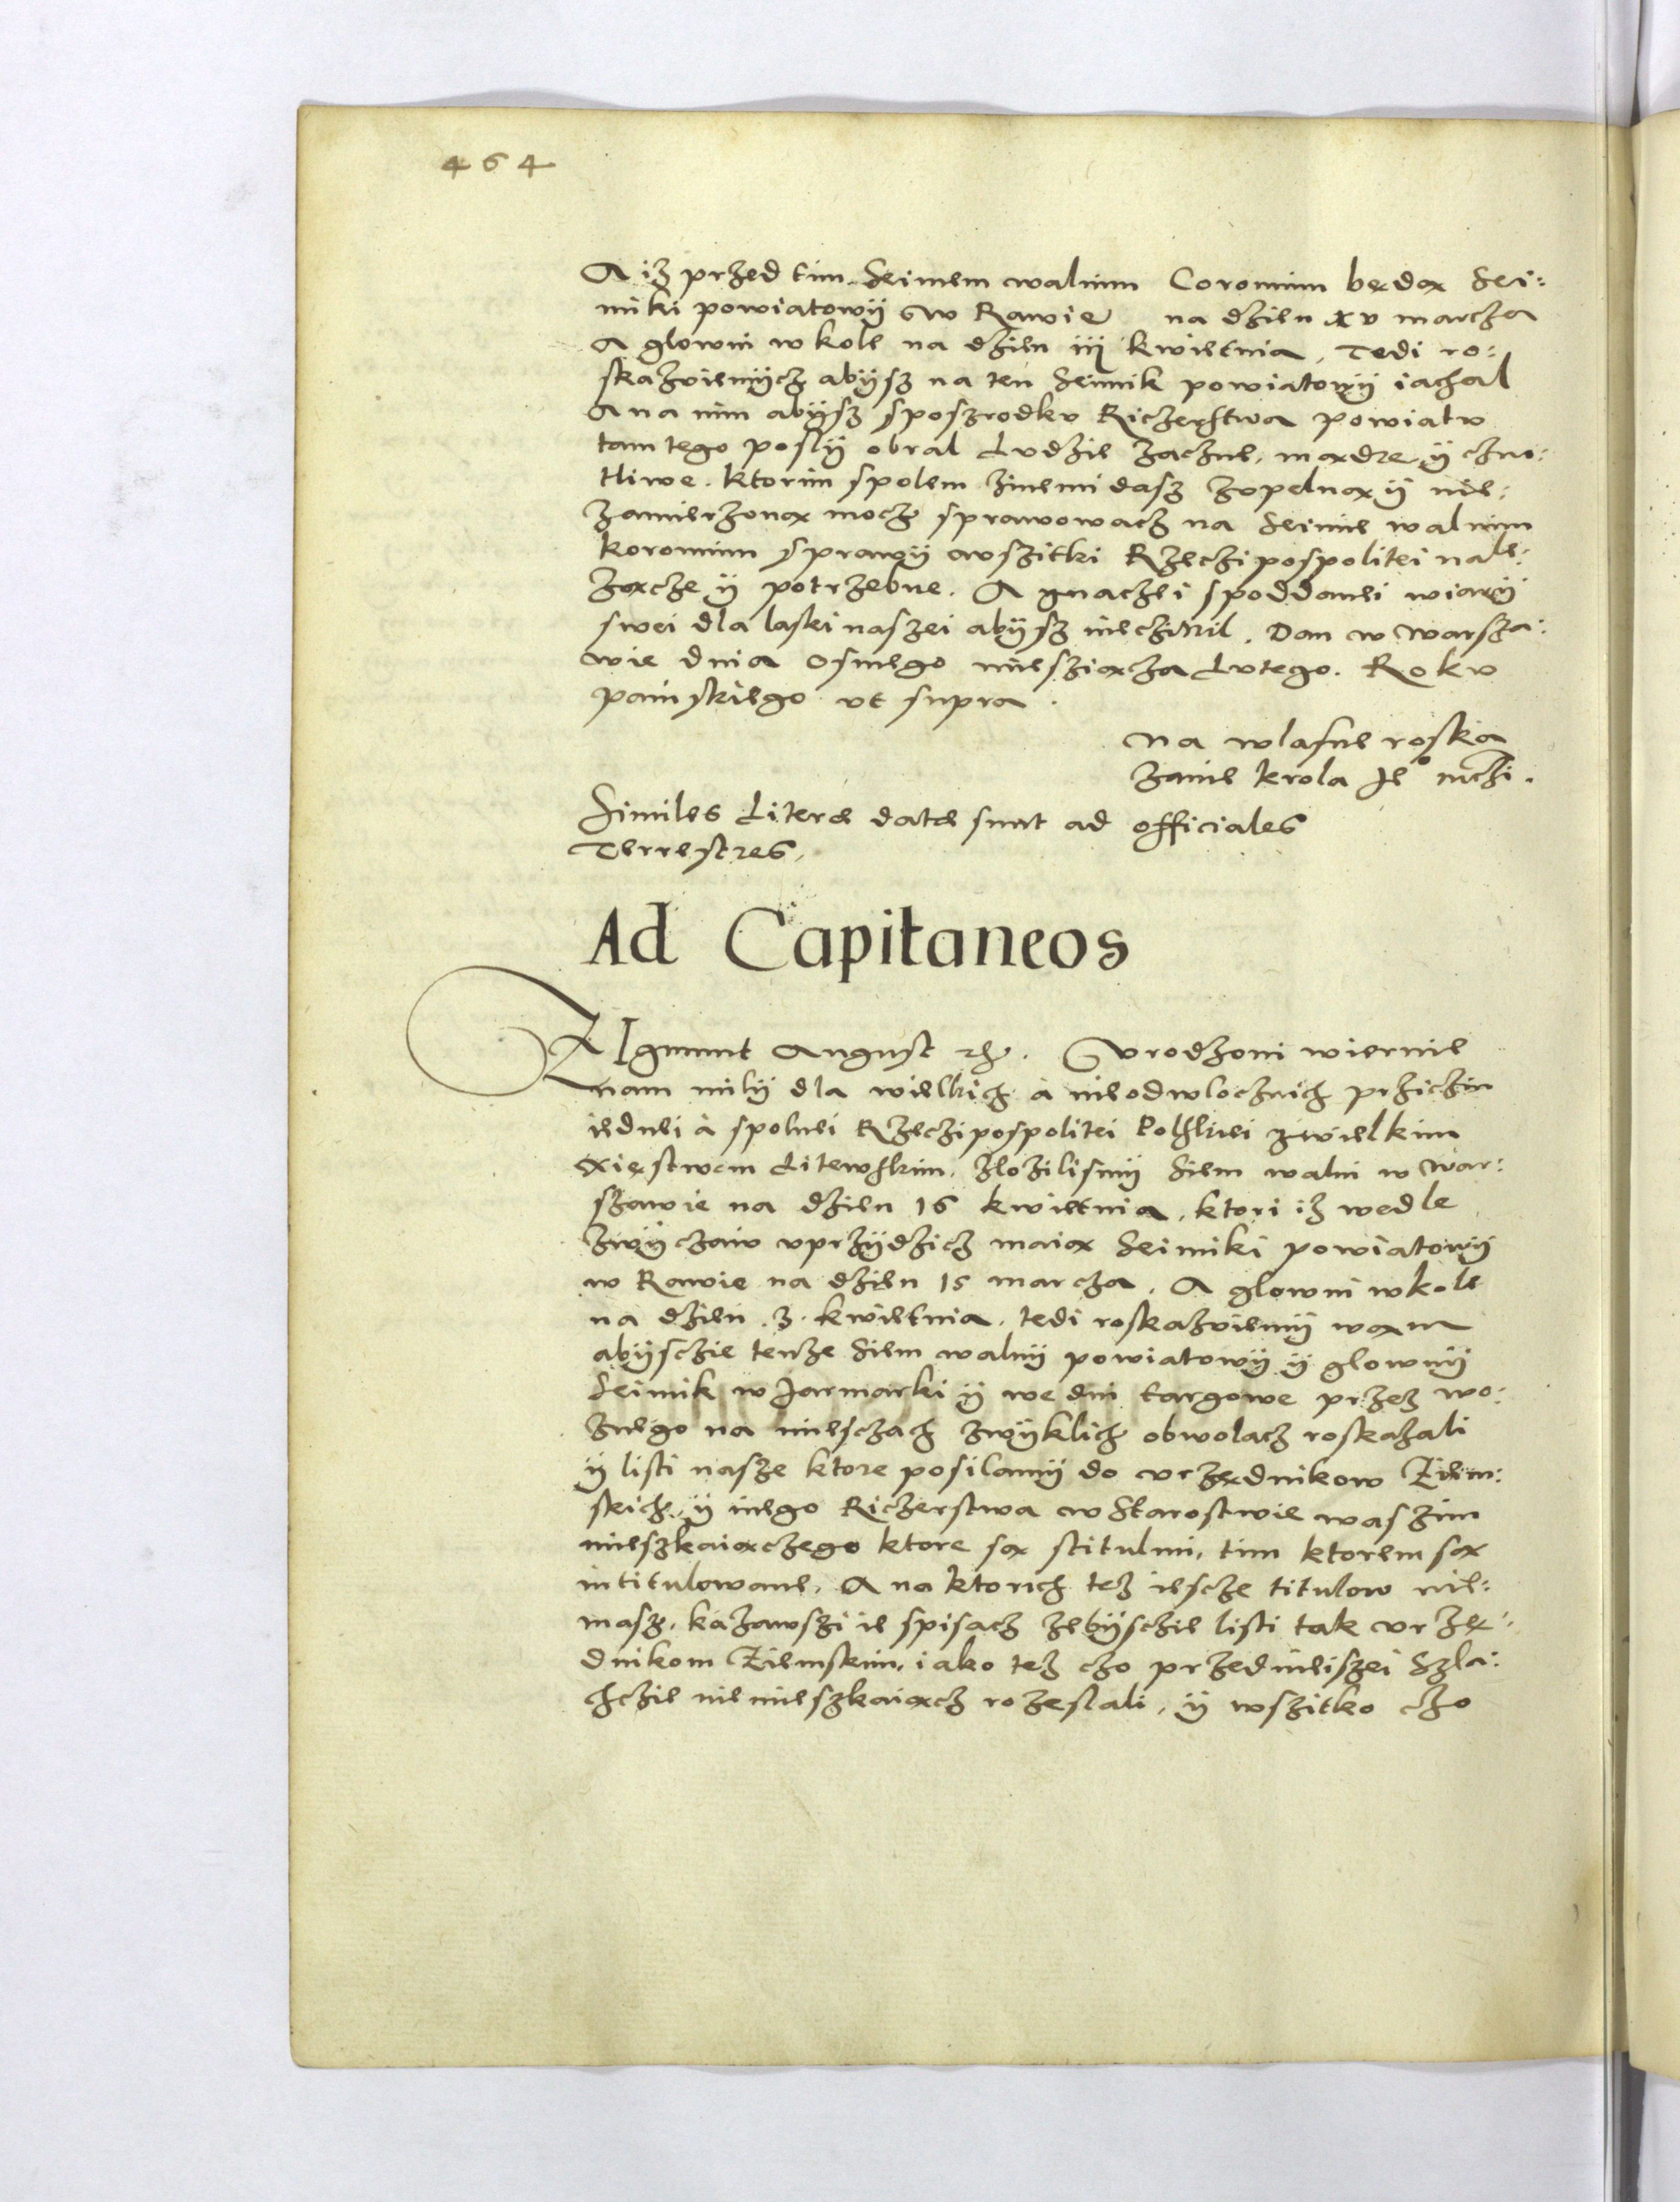 464
A iz przed tim Seimem walnim Coronnim będą Sei:
miki powiatowÿ w Rawie na dzien xv marcza
A glowni w kole na dzien iij kwietnia, Tedi ro:
skazuiemÿ cz abÿsz na ten Seimik powiatowÿ iachal
A na nim abÿsz sposzrodku Riczerstwa powiatu
tam tego poslÿ obral Ludzie zaczne, mądre ÿ czno:
tliwe. ktorim spolem zinemi dasz zupelną ÿ nie:
zamierzoną mocz sprawowacz na Seimie walnim
koronnim sprawÿ wszitki Rzeczipospolitei nale:
żącze ÿ potrzebne. A ÿnaczei spoddanei wiarÿ
swei dla laski naszei abÿsz nieczinil. Dan w Warsza:
wie dnia osmego miesziącza Lutego. Roku
panskiego ut supra.
na wlasne roska
zanie krola Je° mczi.
Similes Literæ datæ sunt ad officiales
Terrestres.
Ad Capitaneos
ZIgmunt August etc. Urodzoni wiernie
nam milÿ dla wielkich à nieodwlocznich prziczin
iednei à spolnei Rzeczipospolitei Polskiei zwielkim
Xięstwem Litewskim, zlozilismÿ Siem walni w War:
szawie na dzien 16 kwietnia, ktori iz wedle
zwÿczaiu uprzÿdzicz maią Seimiki powiatowÿ
w Rawie na dzien 15 marcza, A glowni w kole
na dzien .3. kwietnia, tedi roskazuiemÿ wam
abÿsczie tenze Siem walnÿ powiatowÿ ÿ glownÿ
Seimik w Jarmarki ÿ we dni targowe przez wo:
znego na miesczach zwÿklich obwolacz roskazali
ÿ listi nasze ktore posilamÿ do urzędnikow Ziem:
skich, ÿ inego Riczerstwa w Starostwie waszim
mieszkaiączego ktore są stitulmi, tim ktorem są
intitulowane, A na ktorich tez iescze titulow nie:
masz, kazawszi ie spisacz zebÿsczie listi tak urzę:
dnikom Ziemskim, iako tez czo przednieiszei Szla:
chczie nie mieszkaiącz rozeslali, ÿ wszitko czo